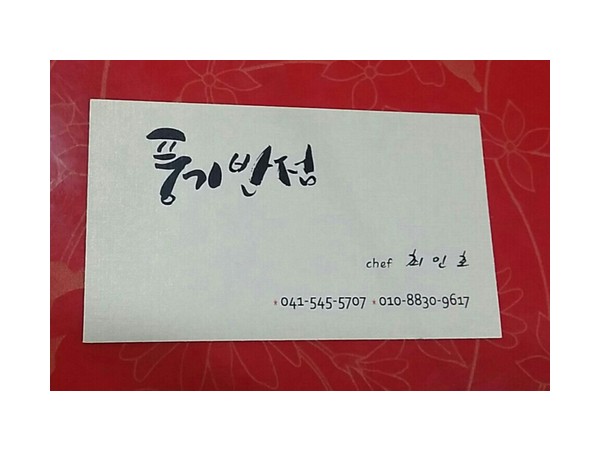 풍기반점
chef 최인호
* 041-545-5707 * 010-8830-9617